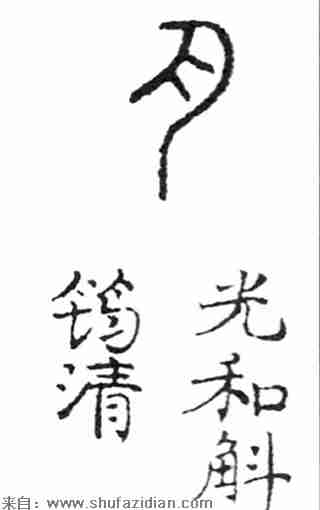 光和斛
筠清
来自：www.shufazidian.com